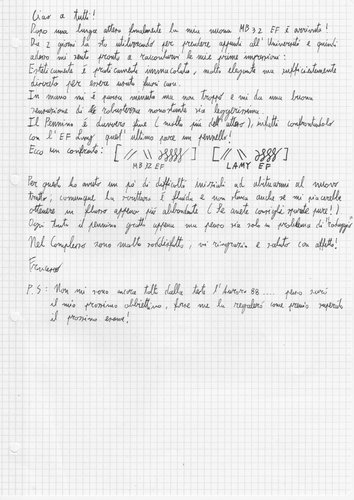 Ciao a tutti!
Dopo una lunga attesa finalmente la mia nuova MB 32 EF è arrivata!
Da 2 giorni la sto utilizzando per prendere appunti all'Università e quindi
adesso mi sento pronto a raccontarvi le mie prime impressioni:
Esteticamente è praticamente immacolata, molto elegante ma sufficientemente
discreta per essere usata fuori casa.
In mano mi è parsa pesante ma non troppo e mi da una buona
sensazione di robustezza nonostante sia leggerissima.
Il Pennino è davvero fine (molto più dell'altro), infatti confrontandolo
con l'EF Lamy quest'ultimo pare un pennello!
Ecco un confronto:
MB 32 EF LAMY EF
Per questo ho avuto un pò di difficoltà iniziali ad abituarmi al nuovo
tratto, comunque la scrittura è fluida e non stanca anche se mi piacerebbe
ottenere un flusso appena più abbondante (Se avete consigli sparate pure!)
Ogni tanto il pennino gratta appena ma penso sia solo un problema di "rodaggio"
Nel Complesso sono molto soddisfatto, vi ringrazio e saluto con affetto!
Francesco
P.S: Non mi sono ancora tolto dalla testa l'Aurora 88.... penso sarà
il mio prossimo obbiettivo, forse me la regalerò come premio superato
il prossimo esame!